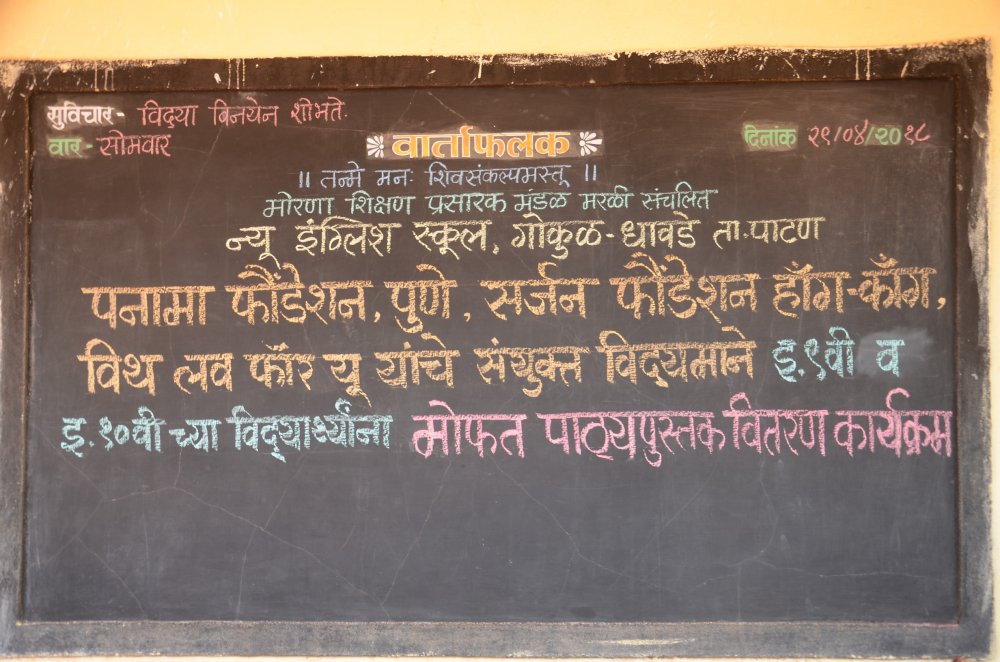 सुविचार - विद्या विनयेन शोभते.
वार - सोमवार
वार्ताफलक
दिनांक २९/०४/२०१८
॥ तन्मे मनः शिवसंकल्पमस्तू ॥
मोरणा शिक्षण प्रसारक मंडळ मरळी संचलित
न्यू इंग्लिश स्कूल, गोकुळ-धावडे ता.पाटण
पनामा फौंडेशन, पुणे, सर्जन फौंडेशन हाँग-काँग,
विथ लव फॉर यू यांचे संयुक्त विद्यमाने इ.९वी व
इ.१०वी च्या विद्यार्थ्यांना मोफत पाठ्यपुस्तक वितरण कार्यक्रम